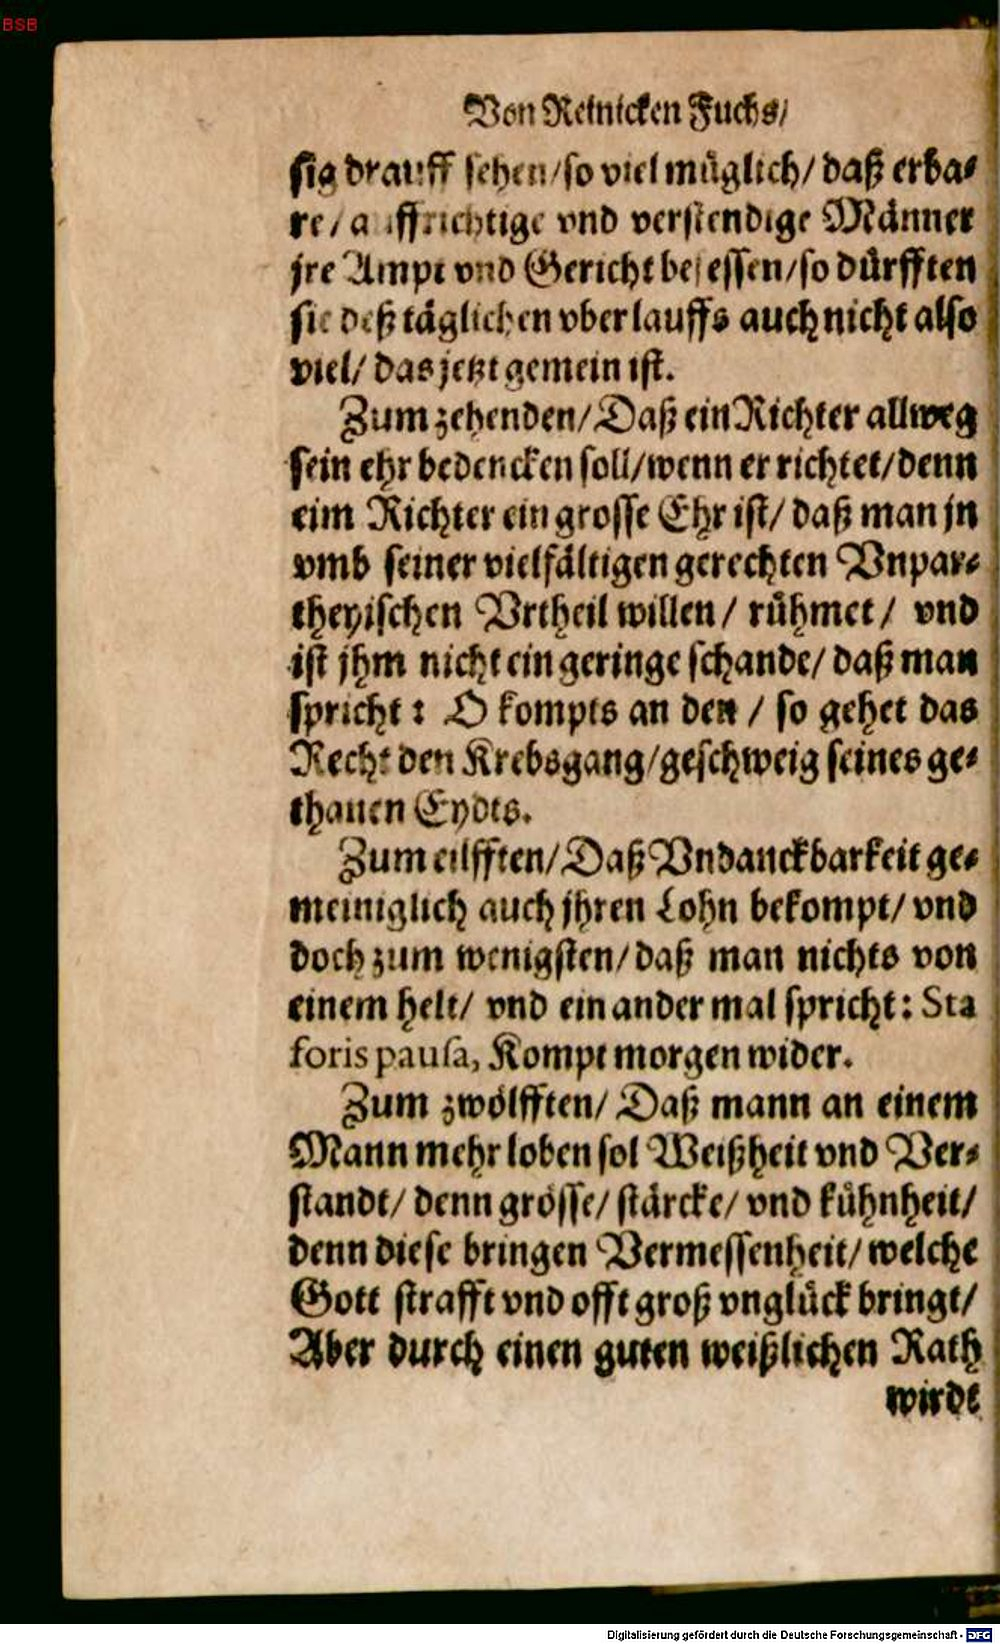 BSB
Von Reinicken Fuchs/
sig drauff sehen/so viel müglich/ daß erba⸗
re/auffrichtige vnd verstendige Männer
jre Ampt vnd Gericht besessen/so dürfften
sie deß täglichen vberlauffs auch nicht also
viel/ das jetzt gemein ist.
Zum zehenden/Daß ein Richter allweg
sein ehr bedencken soll/wenn er richtet/denn
eim Richter ein grosse Ehr ist/ daß man jn
vmb seiner vielfältigen gerechten Vnpar⸗
theyischen Vrtheil willen/ rühmet/ vnd
ist jhm nicht ein geringe schande/ daß man
spricht: O kompts an den / so gehet das
Recht den Krebsgang/geschweig seines ge⸗
thanen Eydts.
Zum eilfften/Daß Vndanckbarkeit ge⸗
meiniglich auch jhren Lohn bekompt/ vnd
doch zum wenigsten/daß man nichts von
einem helt/ vnd ein ander mal spricht: Sta
foris pausa, Kompt morgen wider.
Zum zwölfften/ Daß mann an einem
Mann mehr loben sol Weißheit vnd Ver⸗
standt/ denn grösse/ stärcke/ vnd kühnheit/
denn diese bringen Vermessenheit/welche
Gott strafft vnd offt groß vnglück bringt/
Aber durch einen guten weißlichen Rath
wirdt
Digitalisierung gefördert durch die Deutsche Forschungsgemeinschaft - DFG